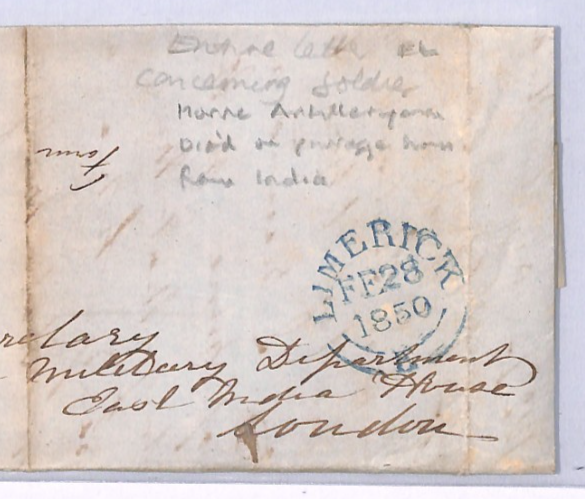 Entire letter
Concerning Soldier
Horse Artilleryman
Died on passage home
from India
LIMERICK
FE 28
1850
retary
Military Department
East India House
London